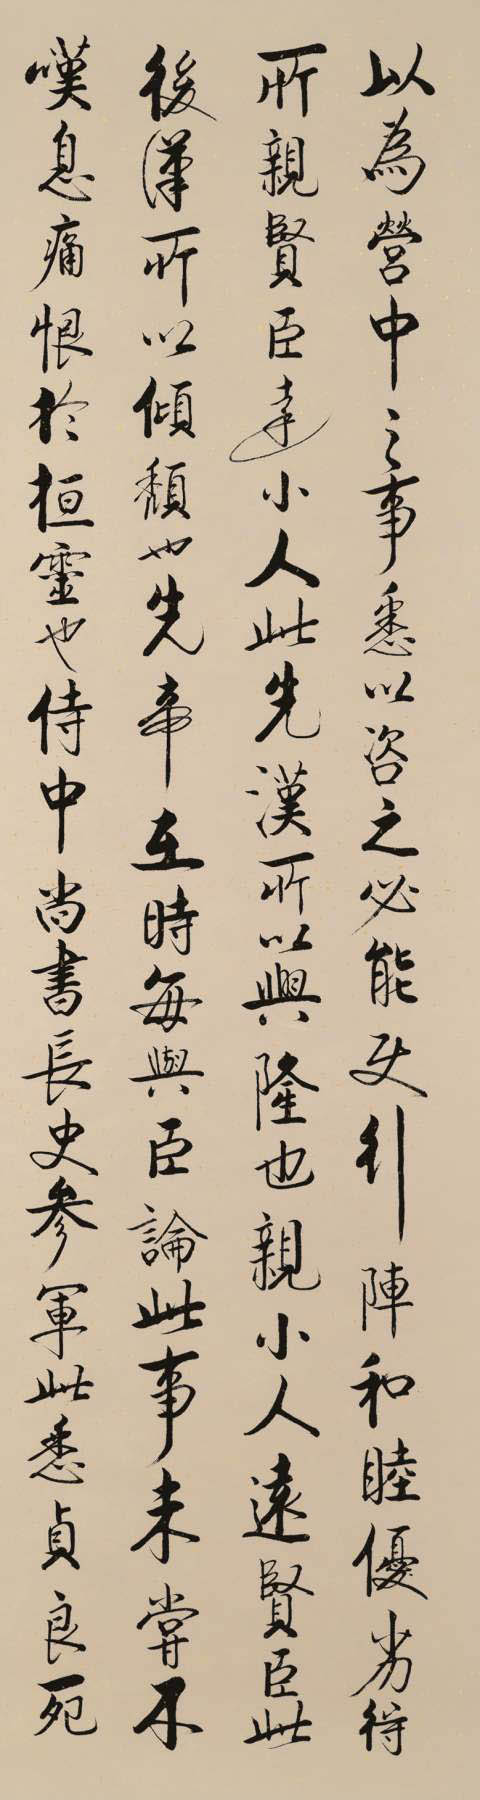 以為營中之事悉以咨之必能使行陣和睦優劣得
所親賢臣遠小人此先漢所以興隆也親小人遠賢臣此
後漢所以傾頹也先帝在時每與臣論此事未嘗不
嘆息痛恨於桓靈也侍中尚書長史參軍此悉貞良死